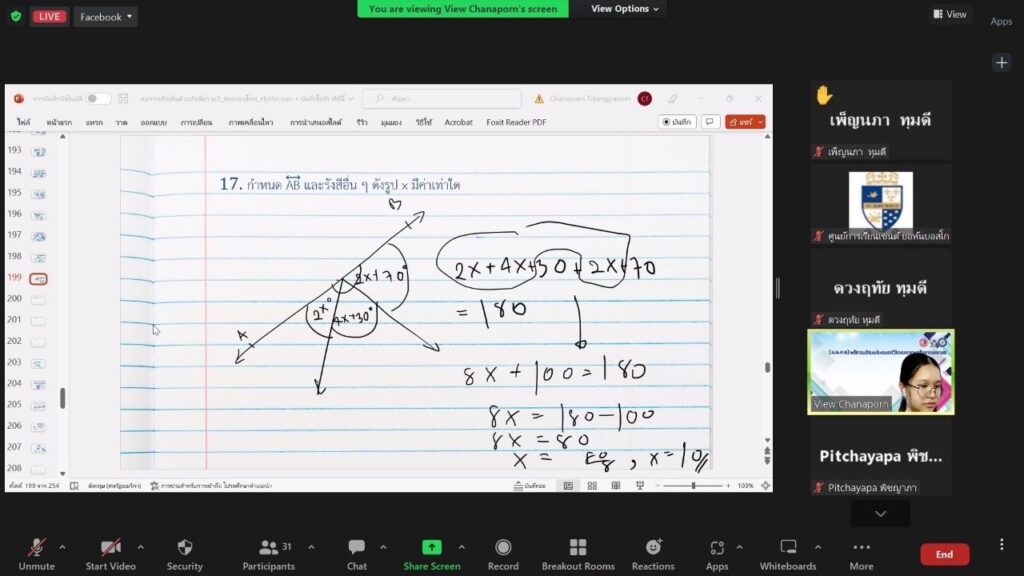 LIVE
Facebook
You are viewing View Chanaporn's screen
View Options
View
Apps
ค้นหา
Chanaporn Thiangpanom
CT
ไฟล์ หน้าแรก แทรก วาด ออกแบบ การเปลี่ยน ภาพเคลื่อนไหว การนำเสนอสไลด์ รีวิว มุมมอง วิธีใช้ Acrobat Foxit Reader PDF
บันทึก
แชร์
193
194
195
196
197
198
199
200
201
202
203
204
205
206
207
208
17. กำหนด AB และรังสีอื่น ๆ ดังรูป x มีค่าเท่าใด
B
2x+70°
2x°
4x+30°
A
2x+4x+30+2x+70
= 180
8x + 100 = 180
8x = 180-100
8x = 80
x = 80/8 , x = 10
สไลด์ 199 จาก 254
อังกฤษ (สหรัฐอเมริกา)
การช่วยสำหรับการเข้าถึง: โปรดศึกษาคำแนะนำ
บันทึกย่อ
103%
เพ็ญนภา ทุมดี
เพ็ญนภา ทุมดี
ศูนย์การเรียนเซนต์ ยอห์นบอสโก
ดวงฤทัย ทุมดี
ดวงฤทัย ทุมดี
View Chanaporn
Pitchayapa พิช...
Pitchayapa พิชญาภา
Unmute
Start Video
Security
31
Participants
Chat
Share Screen
Record
Breakout Rooms
Reactions
Apps
Whiteboards
More
End